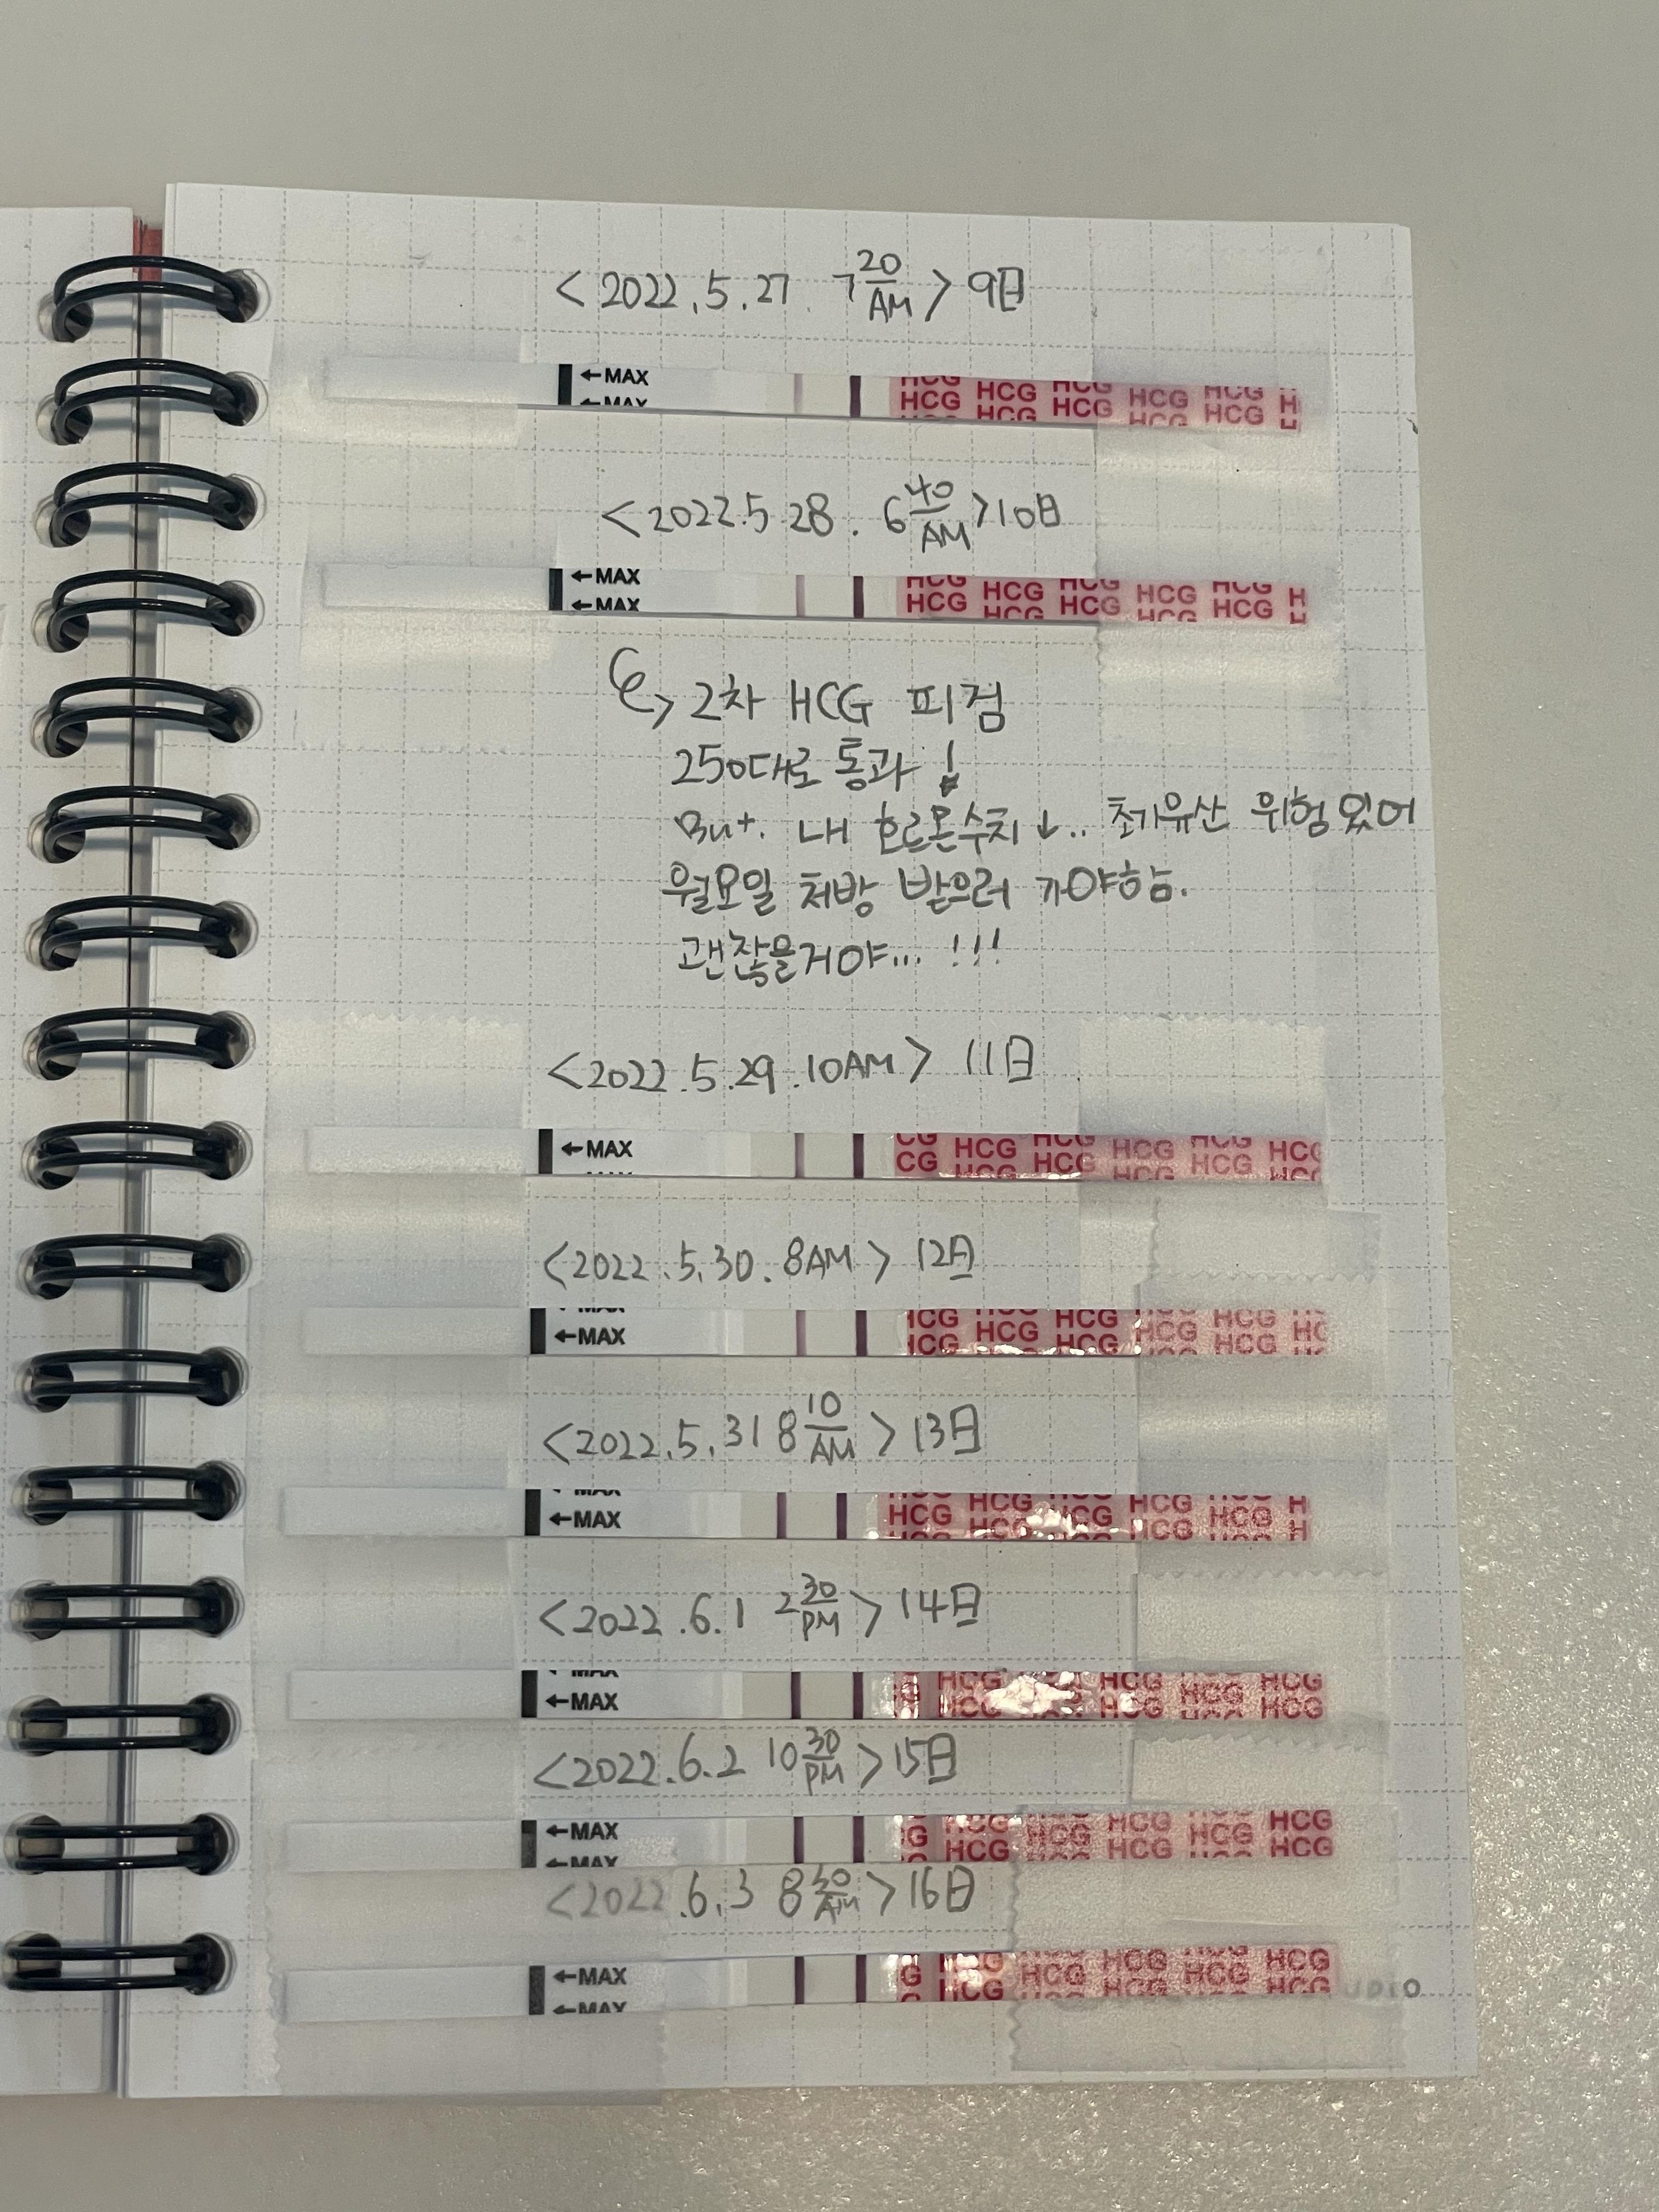 <2022.5.27. 7 20 AM> 9日
←MAX HCG HCG HCG HCG HCG H
←MAX HCG HCG HCG HCG HCG H
<2022.5.28. 6 40 AM> 10日
←MAX HCG HCG HCG HCG HCG H
←MAX HCG HCG HCG HCG HCG H
2차 HCG 피검
250대로 통과!
But. 내 호르몬수치↓.. 초기유산 위험있어
월요일 처방 받으러 가야함.
괜찮을거야... !!!
<2022.5.29.10AM> 11日
←MAX CG HCG HCG HCG HCG HCG
<2022.5.30.8AM> 12日
←MAX HCG HCG HCG HCG HCG HC
<2022.5.31 8 10 AM> 13日
←MAX HCG HCG HCG HCG HCG H
<2022.6.1 2 30 PM> 14日
←MAX HCG HCG HCG HCG HCG
<2022.6.2 10 30 PM> 15日
←MAX G HCG HCG HCG HCG HCG
←MAX
<2022.6.3 8 30 AM> 16日
←MAX G HCG HCG HCG HCG HCG
←MAX